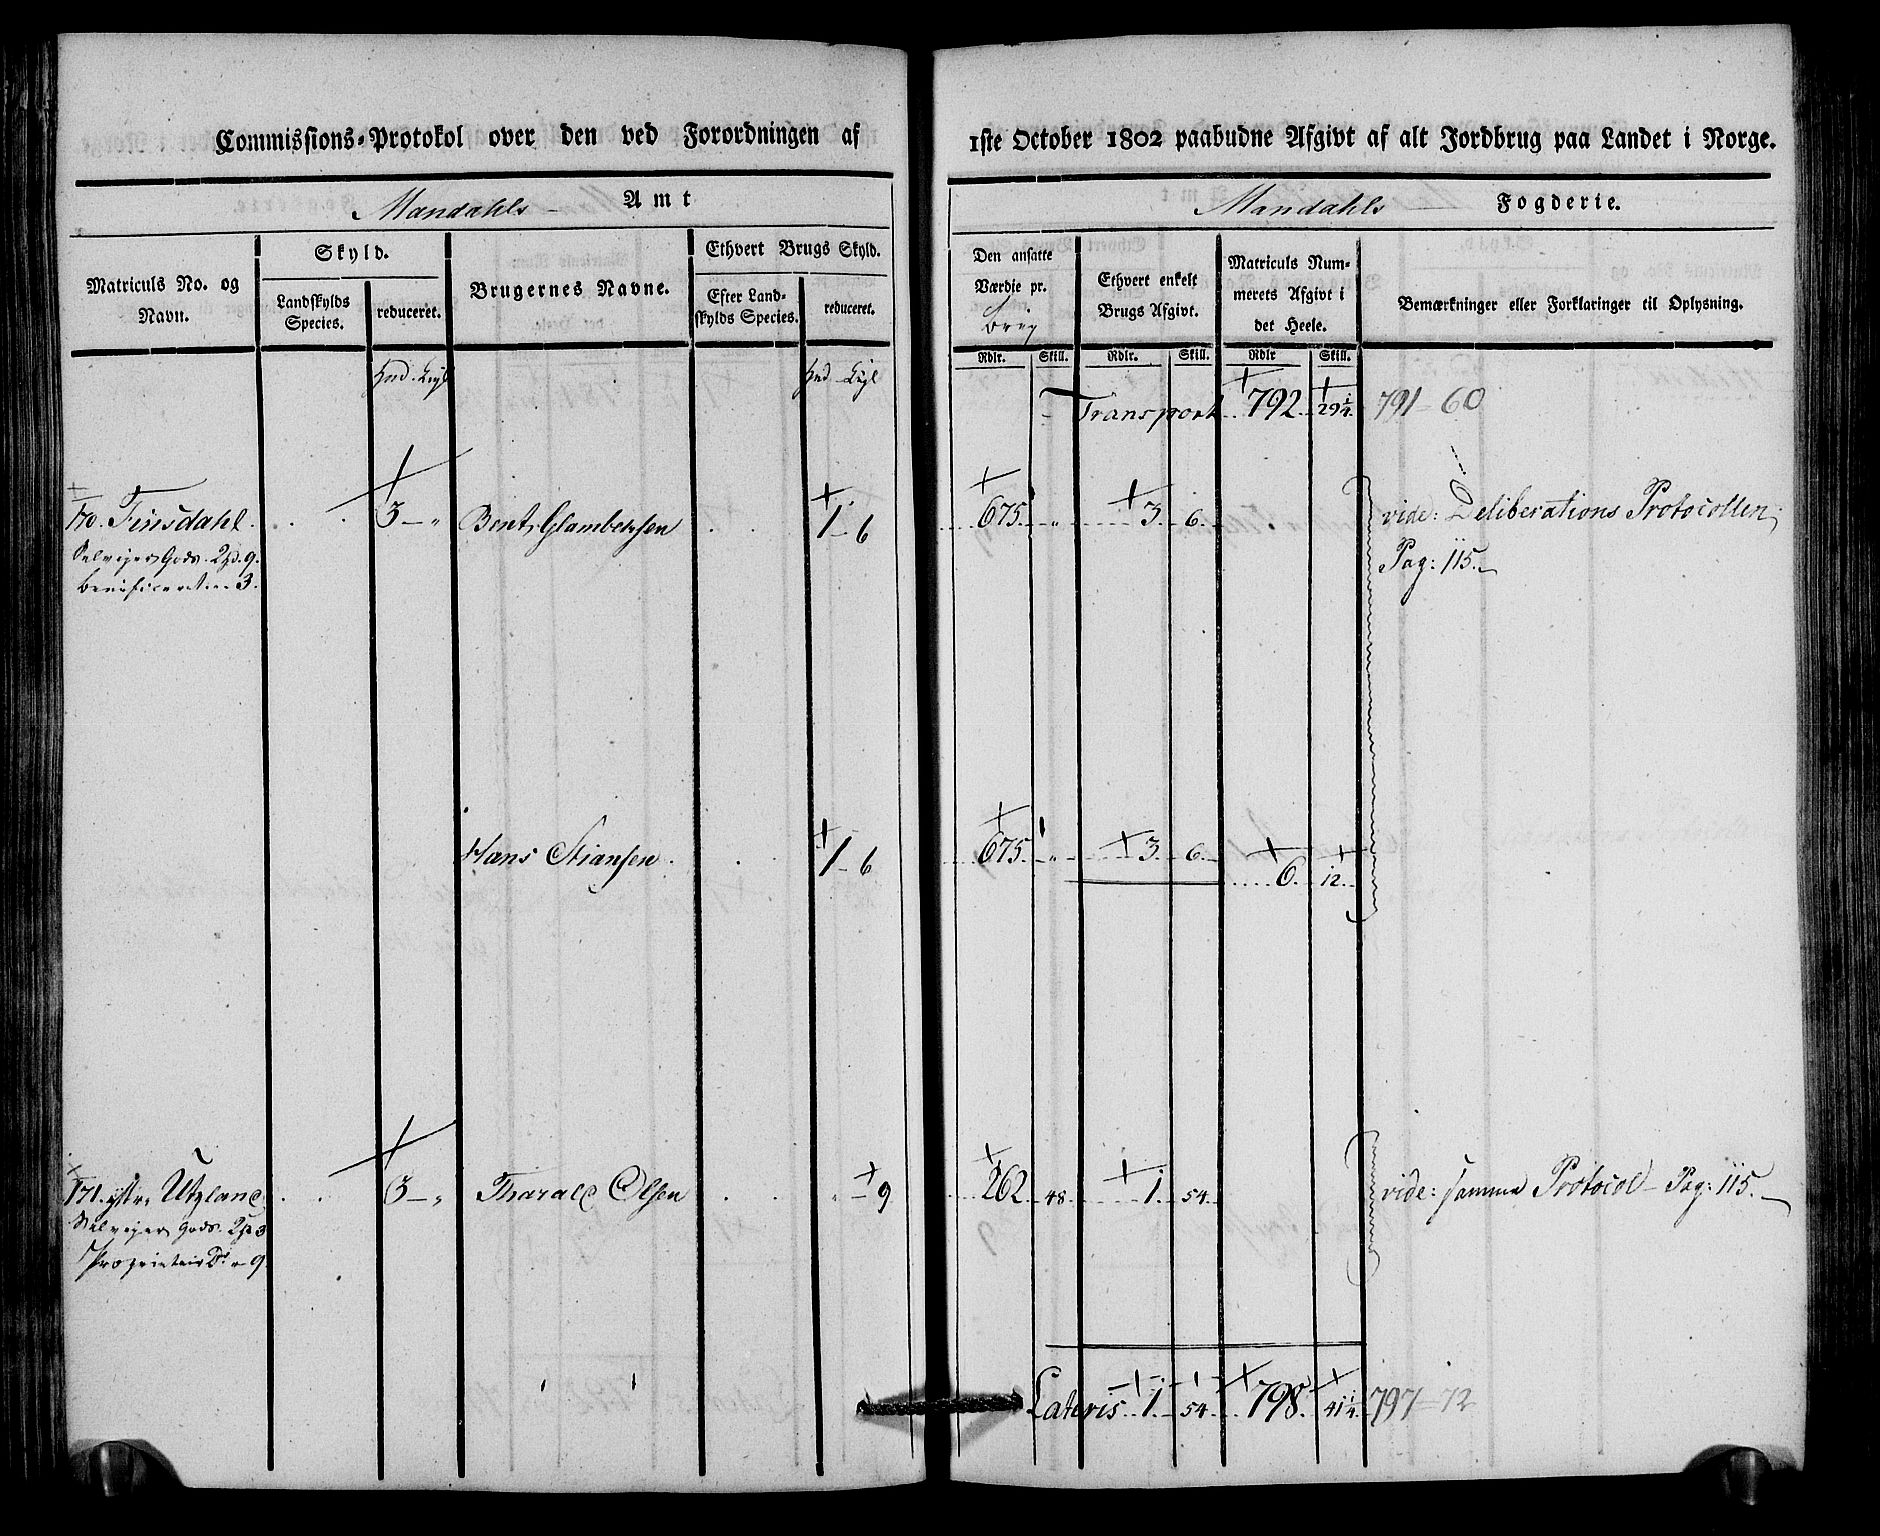 Commissions-Protokol over den ved Forordningen af 1ste October 1802 paabudne Afgivt af alt Jordbrug paa Landet i Norge.
Mandahls Amt
Mandahls Fogderie.
Matriculs No. og Navn.
Skyld.
Landskylds Species.
reduceret.
Brugernes Navne.
Ethvert Brugs Skyld.
Efter Landskylds Species.
reduceret.
Den ansatte Værdie pr. brug
Ethvert enkelt Brugs Afgivt.
Matriculs Nummerets Afgivt i det Heele.
Bemærkninger eller Forklaringer til Oplysning.
Rdlr. Skill. Rdlr. Skill. Rdlr Skill.
Transport 792. 29 1/4. 791 - 60
170. Tinsdahl. 3 - „ Bent 1 - 6 675. „ 3. 6. vide: Deliberations Protocollen
Selveier Gods. 9. Pag: 115.
Beneficeret 3.
Hans Stiansen. 1 - 6 675. „ 3. 6. 6. 12.
171. ystre Utzland 3 - „ Tharald Olsen „ - 9 262 48. 1. 54. vide: samme Protocol - Pag: 115.
Selveier Gods. 3
Proprietair Do. 9.
Lateris 1. 54. 798. 41 1/4. 797 - 72